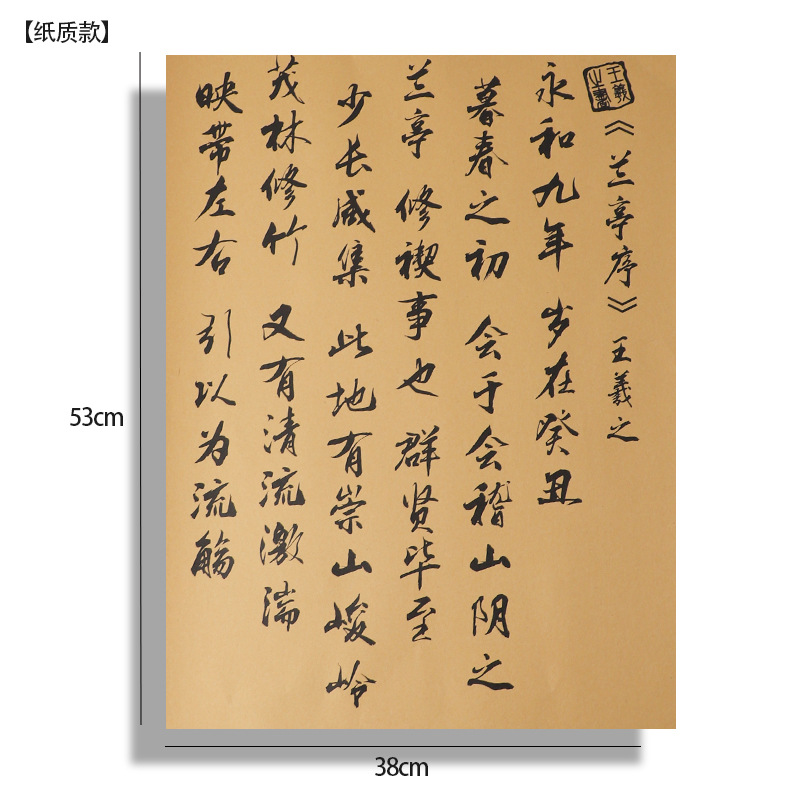 【纸质款】
《兰亭序》王羲之
永和九年 岁在癸丑
暮春之初 会于会稽山阴之
兰亭 修禊事也 群贤毕至
少长咸集 此地有崇山峻岭
茂林修竹 又有清流激湍
映带左右 引以为流觞
53cm
38cm